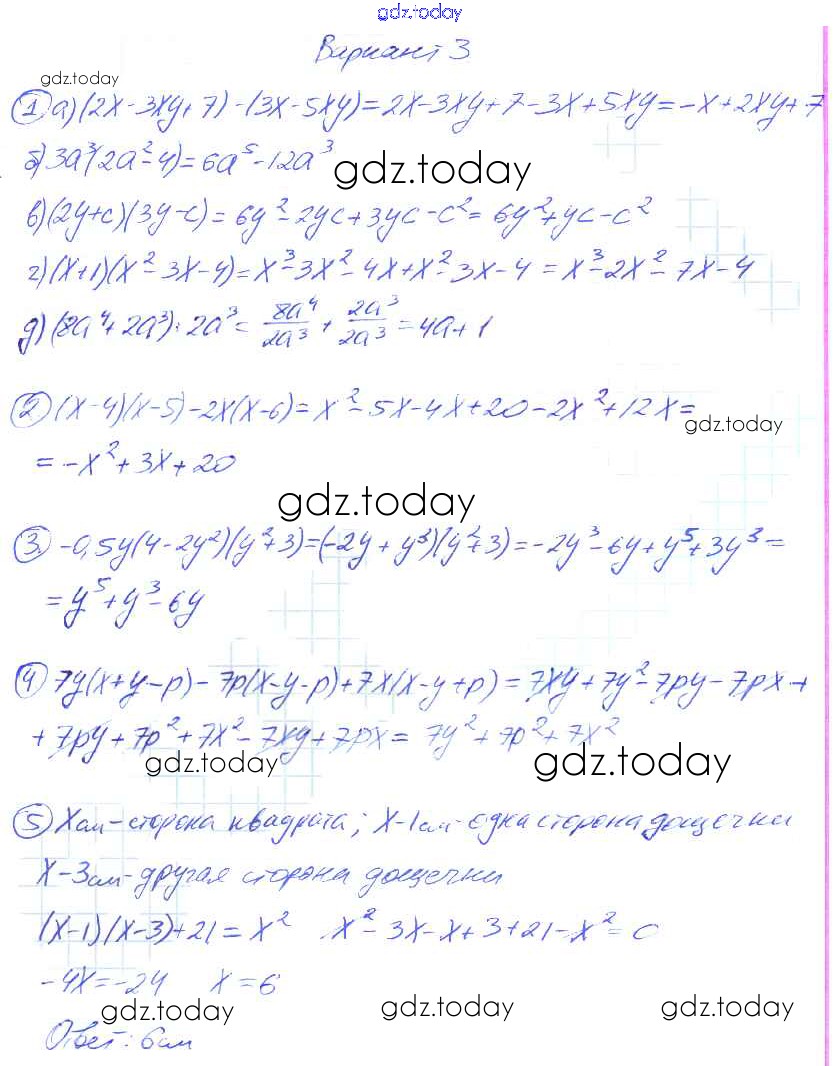 gdz.today
Вариант 3
gdz.today
1 а) (2x - 3xy + 7) - (3x - 5xy) = 2x - 3xy + 7 - 3x + 5xy = -x + 2xy + 7
б) 3a³(2a² - 4) = 6a⁵ - 12a³
gdz.today
в) (2y + c)(3y - c) = 6y² - 2yc + 3yc - c² = 6y² + yc - c²
г) (x + 1)(x² - 3x - 4) = x³ - 3x² - 4x + x² - 3x - 4 = x³ - 2x² - 7x - 4
д) (8a⁴ + 2a³) : 2a³ = 8a⁴/2a³ + 2a³/2a³ = 4a + 1
2 (x - 4)(x - 5) - 2x(x - 6) = x² - 5x - 4x + 20 - 2x² + 12x =
gdz.today
= -x² + 3x + 20
gdz.today
3. -0,5y(4 - 2y²)(y² + 3) = (-2y + y³)(y² + 3) = -2y³ - 6y + y⁵ + 3y³ =
= y⁵ + y³ - 6y
4 7y(x + y - p) - 7p(x - y - p) + 7x(x - y + p) = 7xy + 7y² - 7py - 7px +
+ 7py + 7p² + 7x² - 7xy + 7px = 7y² + 7p² + 7x²
gdz.today gdz.today
5 x см - сторона квадрата; x - 1 см - одна сторона дощечки
x - 3 см - другая сторона дощечки
(x - 1)(x - 3) + 21 = x² x² - 3x - x + 3 + 21 - x² = 0
-4x = -24 x = 6
gdz.today gdz.today gdz.today
Ответ: 6 см